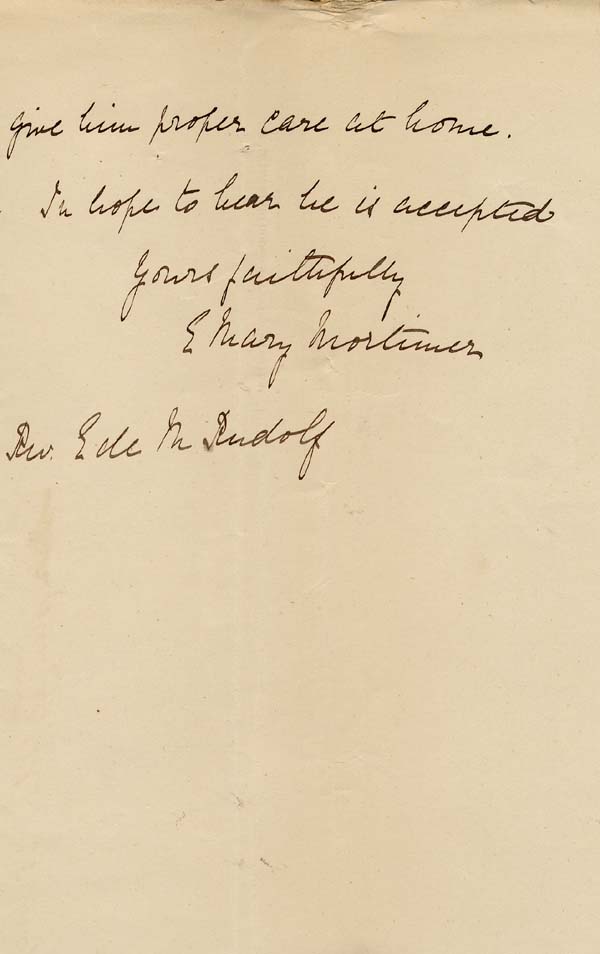 give him proper care at home.
In hope to hear he is accepted
Yours faithfully
E Mary Mortimer
Rev. E de M Rudolf